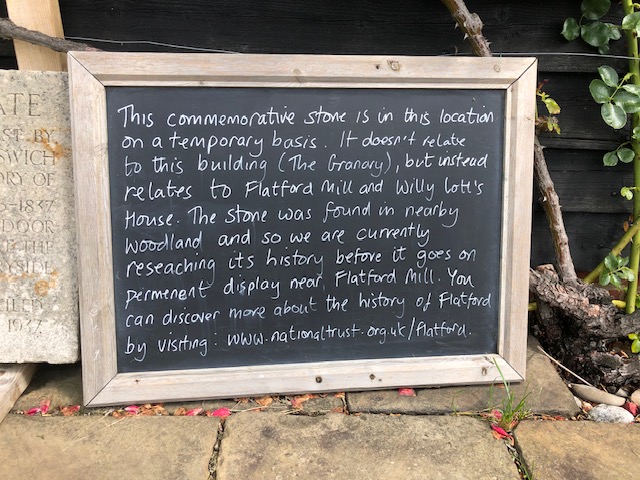 ATE
ST BY
SWICH
ORY OF
-1837
DOOR
THE
SIDE
EILED
1937
This commemorative stone is in this location
on a temporary basis. It doesn't relate
to this building (The Granary), but instead
relates to Flatford Mill and Willy Lott's
House. The stone was found in nearby
woodland and so we are currently
reseaching its history before it goes on
permenent display near Flatford Mill. You
can discover more about the history of Flatford
by visiting: www.nationaltrust.org.uk/flatford.